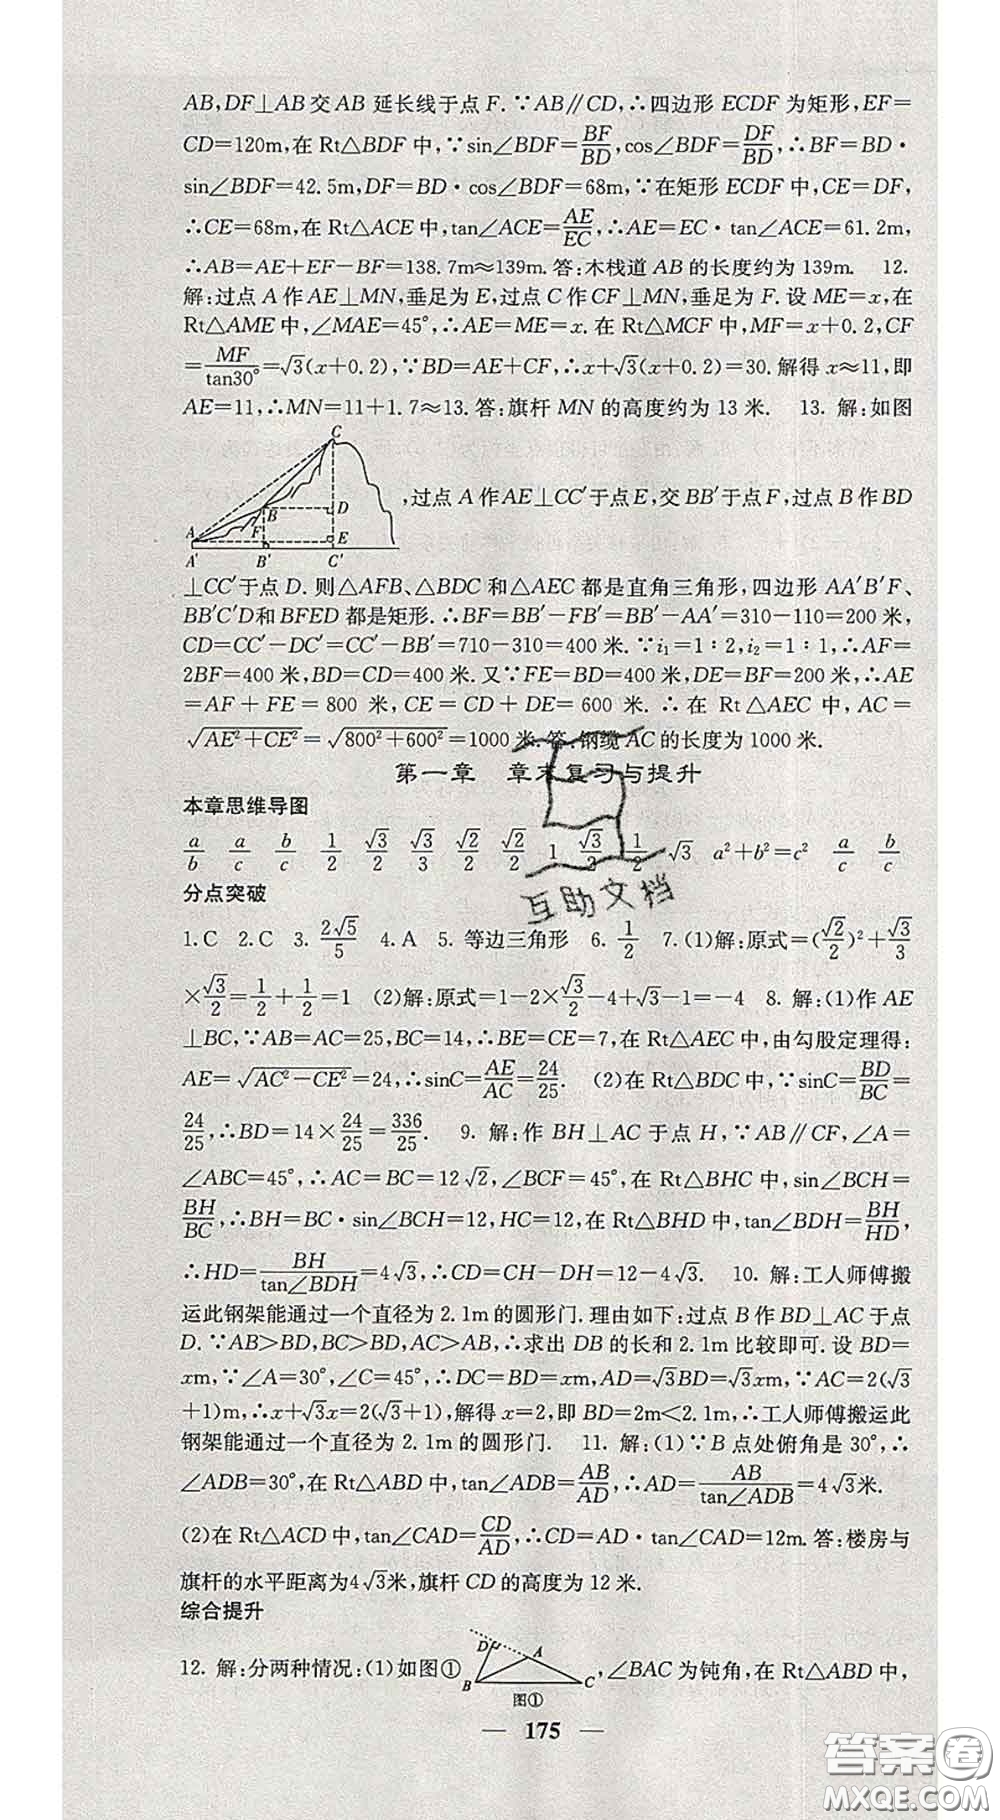 AB,DF⊥AB交AB延长线于点F.∵AB∥CD,∴四边形ECDF为矩形,EF=
CD=120m,在Rt△BDF中,∵sin∠BDF=BF/BD,cos∠BDF=DF/BD,∴BF=BD·
sin∠BDF=42.5m,DF=BD·cos∠BDF=68m,∵在矩形ECDF中,CE=DF,
∴CE=68m,在Rt△ACE中,tan∠ACE=AE/EC,∴AE=EC·tan∠ACE=61.2m,
∴AB=AE+EF-BF=138.7m≈139m.答:木栈道AB的长度约为139m. 12.
解:过点A作AE⊥MN,垂足为E,过点C作CF⊥MN,垂足为F.设ME=x,在
Rt△AME中,∠MAE=45°,∴AE=ME=x.在Rt△MCF中,MF=x+0.2,CF
=MF/tan30°=√3(x+0.2),∵BD=AE+CF,∴x+√3(x+0.2)=30.解得x≈11,即
AE=11,∴MN=11+1.7≈13.答:旗杆MN的高度约为13米. 13. 解:如图
C
B D
A F E
A′ B′ C′
,过点A作AE⊥CC′于点E,交BB′于点F,过点B作BD
⊥CC′于点D.则△AFB、△BDC和△AEC都是直角三角形,四边形AA′B′F、
BB′C′D和BFED都是矩形.∴BF=BB′-FB′=BB′-AA′=310-110=200米,
CD=CC′-DC′=CC′-BB′=710-310=400米.∵i₁=1∶2,i₂=1∶1,∴AF=
2BF=400米,BD=CD=400米.又∵FE=BD=400米,DE=BF=200米,∴AE
=AF+FE=800米,CE=CD+DE=600米.∴在Rt△AEC中,AC=
√(AE²+CE²)=√(800²+600²)=1000米.答:钢缆AC的长度为1000米.
第一章 章末复习与提升
本章思维导图
a/b a/c b/c 1/2 √3/2 √3/3 √2/2 √2/2 1 √3/2 1/2 √3 a²+b²=c² a/c b/c
互助文档
分点突破
1.C 2.C 3. 2√5/5 4.A 5. 等边三角形 6. 1/2 7.(1)解:原式=(√2/2)²+√3/3
×√3/2=1/2+1/2=1 (2)解:原式=1-2×√3/2-4+√3-1=-4 8. 解:(1)作AE
⊥BC,∵AB=AC=25,BC=14,∴BE=CE=7,在Rt△AEC中,由勾股定理得:
AE=√(AC²-CE²)=24,∴sinC=AE/AC=24/25. (2)在Rt△BDC中,∵sinC=BD/BC=
24/25,∴BD=14×24/25=336/25. 9. 解:作BH⊥AC于点H,∵AB∥CF,∠A=
∠ABC=45°,∴AC=BC=12√2,∠BCF=45°,在Rt△BHC中,sin∠BCH=
BH/BC,∴BH=BC·sin∠BCH=12,HC=12,在Rt△BHD中,tan∠BDH=BH/HD,
∴HD=BH/tan∠BDH=4√3,∴CD=CH-DH=12-4√3. 10. 解:工人师傅搬
运此钢架能通过一个直径为2.1m的圆形门.理由如下:过点B作BD⊥AC于点
D.∵AB>BD,BC>BD,AC>AB,∴求出DB的长和2.1m比较即可.设BD=
xm,∵∠A=30°,∠C=45°,∴DC=BD=xm,AD=√3BD=√3xm,∵AC=2(√3
+1)m,∴x+√3x=2(√3+1),解得x=2,即BD=2m<2.1m,∴工人师傅搬运此
钢架能通过一个直径为2.1m的圆形门. 11. 解:(1)∵B点处俯角是30°,∴
∠ADB=30°,在Rt△ABD中,tan∠ADB=AB/AD,∴AD=AB/tan∠ADB=4√3米.
(2)在Rt△ACD中,tan∠CAD=CD/AD,∴CD=AD·tan∠CAD=12m.答:楼房与
旗杆的水平距离为4√3米,旗杆CD的高度为12米.
综合提升
12. 解:分两种情况:(1)如图①,∠BAC为钝角,在Rt△ABD中,
D A
B C
图①
— 175 —
答案圈
MXQE.COM